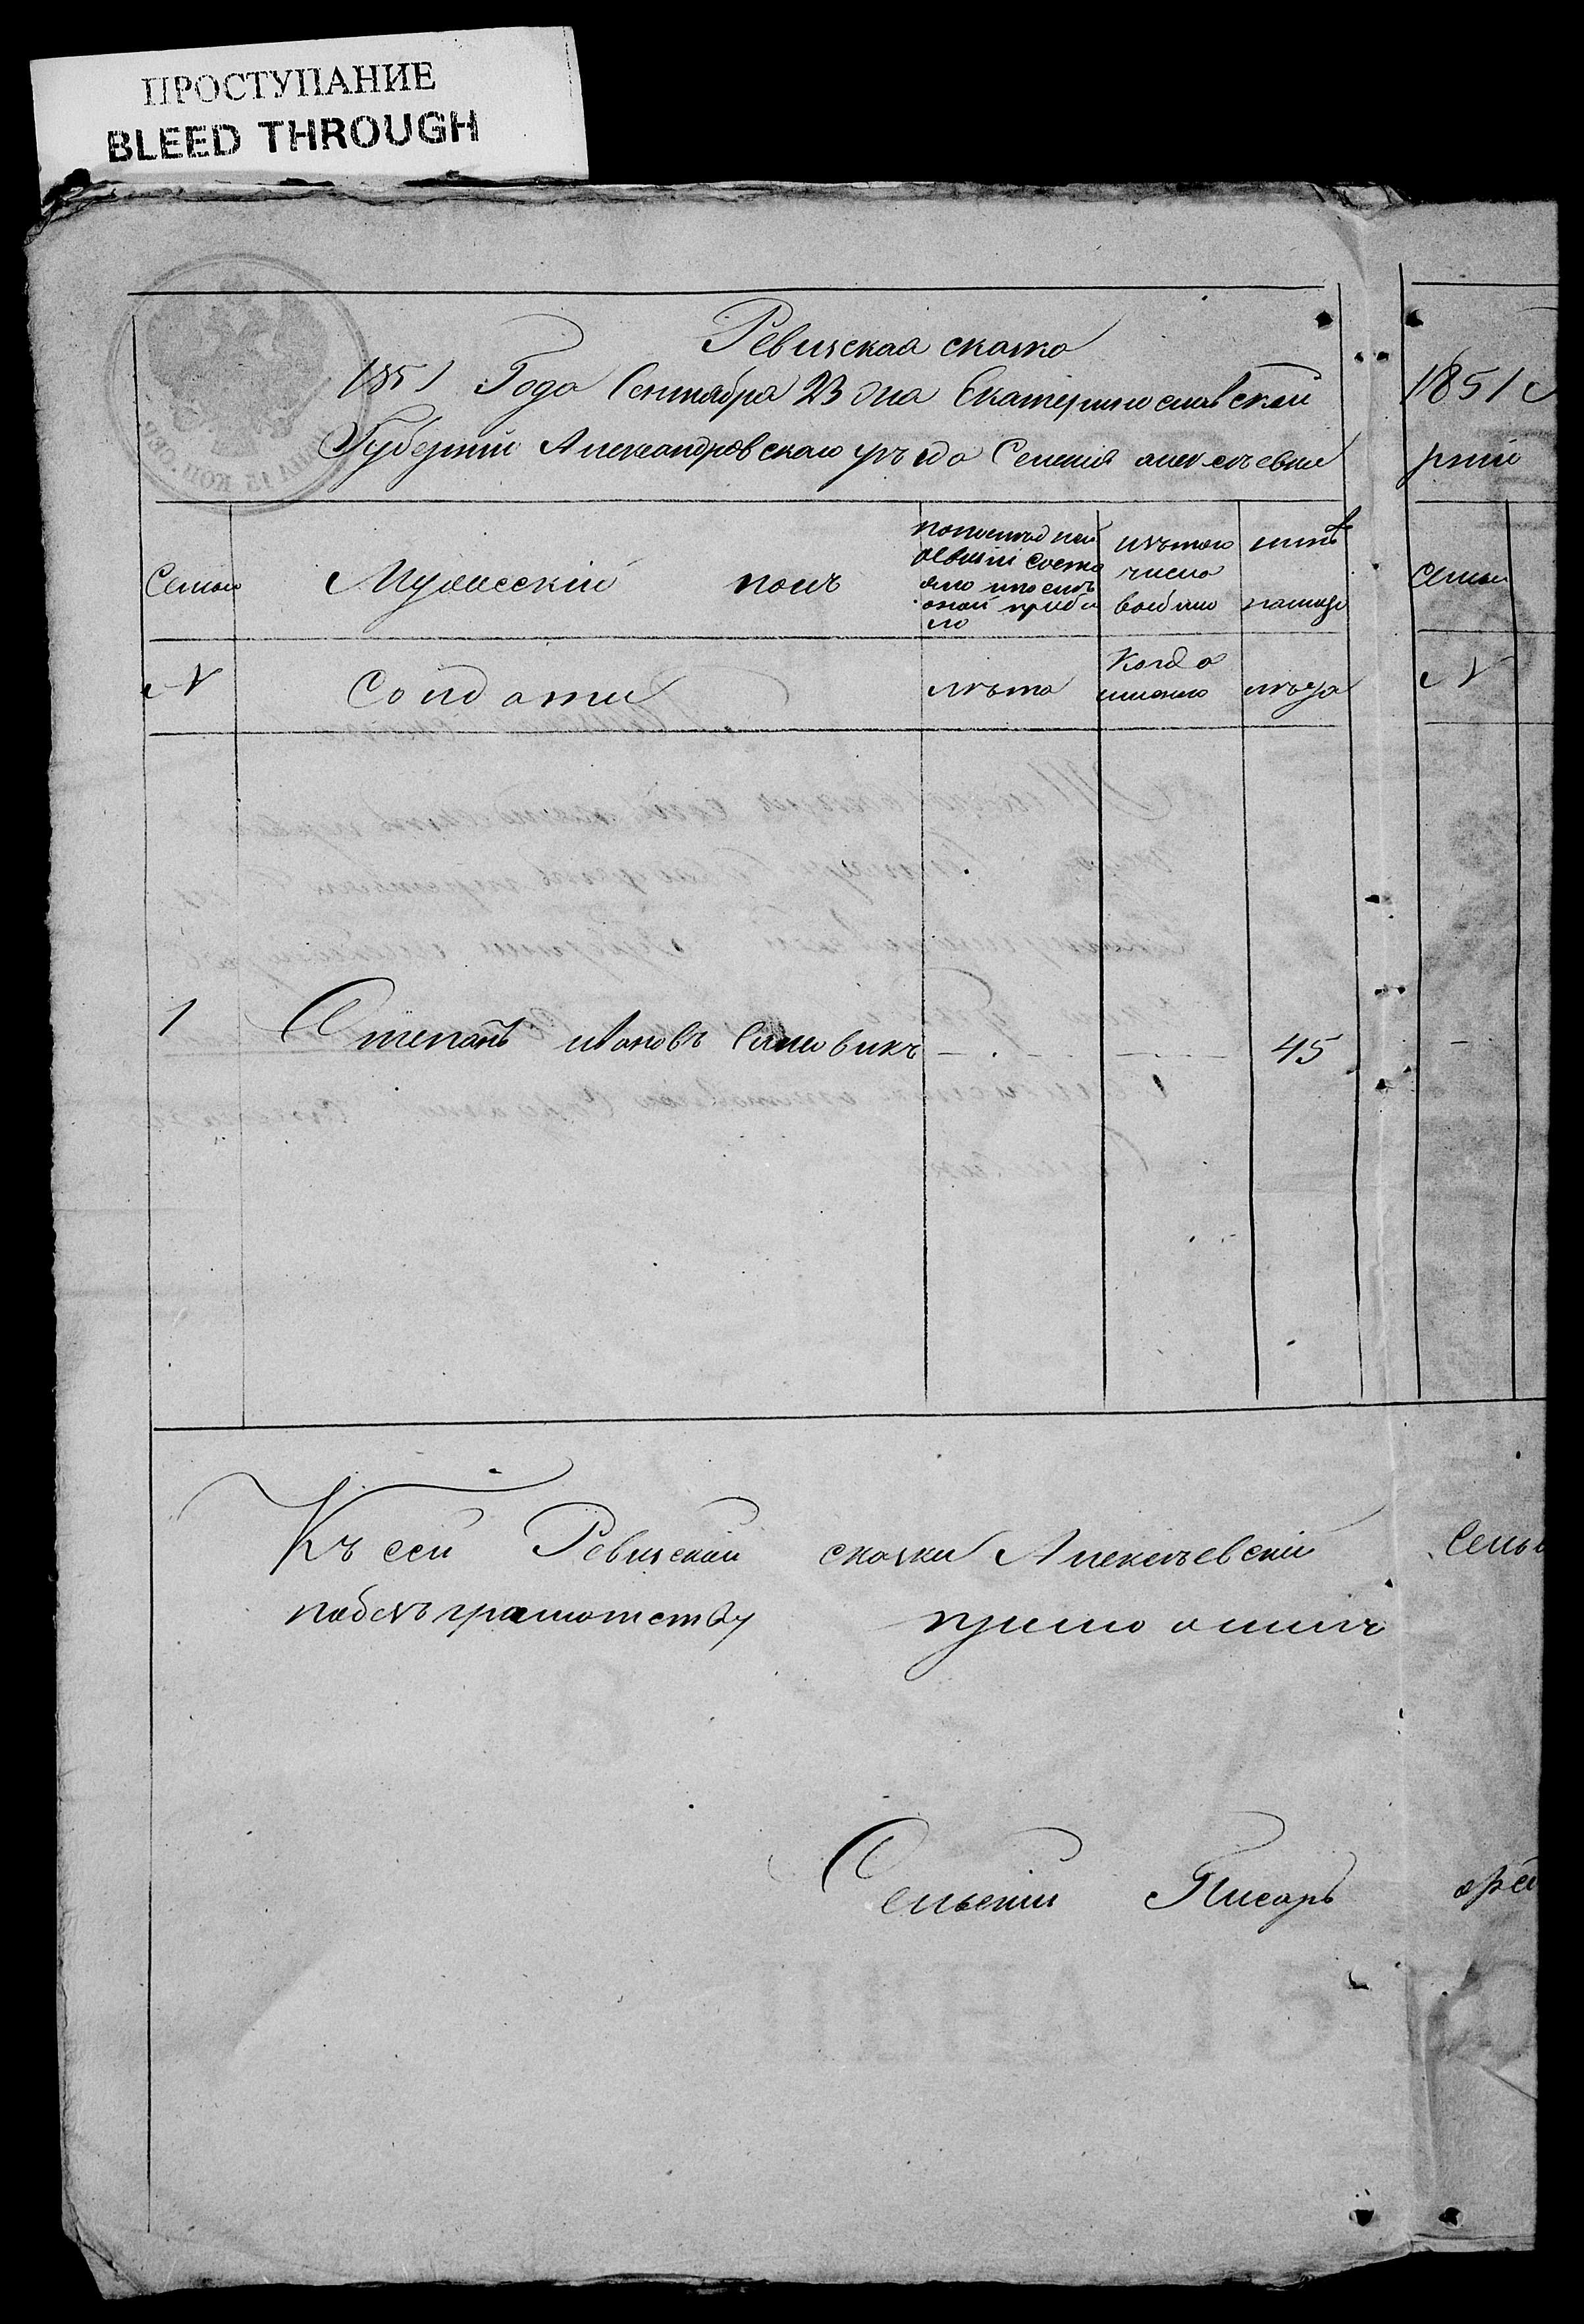 ПРОСТУПАНИЕ
BLEED THROUGH
Ревизская сказка
1851 Года Сентября 23 дня Екатеринославской
Губернии Александровскаго уезда Селения алексѣевки
1851
рнии
Семьи
Мужесскій полъ
попоследней
ревизіи состо
яло ипослѣ
оной прибы
ло
изътого
число
выбыло
нынѣ
налицо
Семьи
N
Солдаты
лѣта
Когда
имянно
лѣта
N
1
Степанъ ивановъ Слисовикъ
45
Къ сей Ревизской сказки Алексѣевскій Сельс
побезъграмотству
Сельскій Писарь